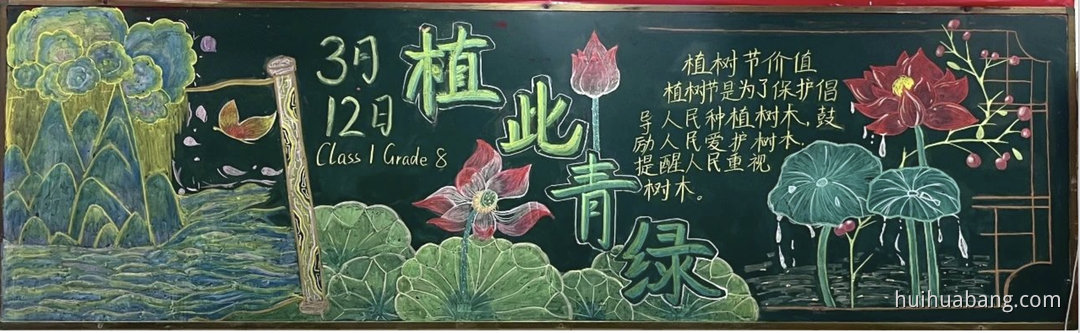 3月
12日
Class 1 Grade 8
植此青绿
植树节价值
植树节是为了保护倡
导人民种植树木,鼓
励人民爱护树木.
提醒人民重视
树木。
huihuabang.com